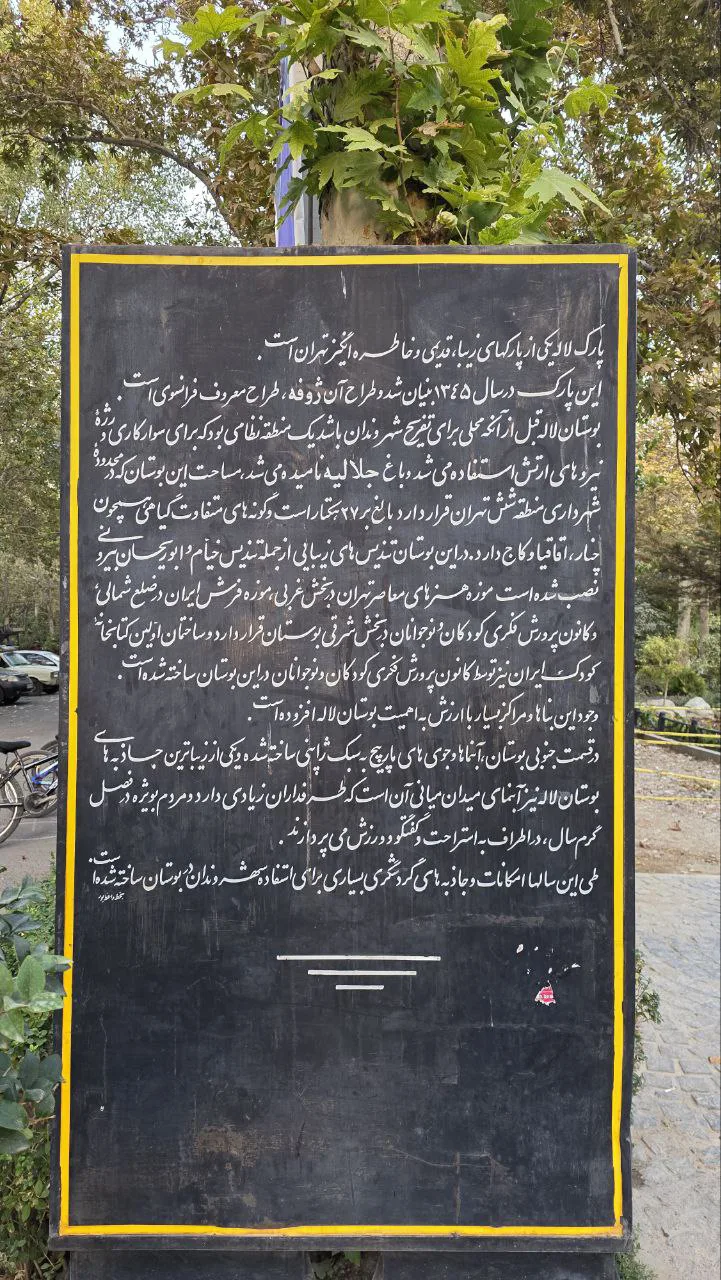 پارک لاله یکی از پارکهای زیبا، قدیمی و خاطره انگیز تهران است.
این پارک در سال ۱۳۴۵ بنیان شد و طراح آن ژوفه، طراح معروف فرانسوی است.
بوستان لاله قبل از آنکه محلی برای تفریح شهروندان باشد یک منطقه نظامی بود که برای سوارکاری و رژهٔ
نیروهای ارتش استفاده می شد و باغ جلالیه نامیده می شد. مساحت این بوستان که در محدودهٔ
شهرداری منطقه شش تهران قرار دارد بالغ بر ۲۷ هکتار است و گونه های متفاوت گیاهی همچون
چنار، اقاقیا و کاج دارد. در این بوستان تندیس های زیبایی از جمله تندیس خیام و ابوریحان بیرونی
نصب شده است موزه هنرهای معاصر تهران در بخش غربی، موزه فرش ایران در ضلع شمالی
و کانون پرورش فکری کودکان و نوجوانان در بخش شرقی بوستان قرار دارد و ساختمان اولین کتابخانهٔ
کودک ایران نیز توسط کانون پرورش فکری کودکان و نوجوانان در این بوستان ساخته شده است.
وجود این بناها و مراکز بسیار با ارزش به اهمیت بوستان لاله افزوده است.
در قسمت جنوبی بوستان، آبنماها و جوی های مارپیچ به سبک ژاپنی ساخته شده و یکی از زیباترین جاذبه های
بوستان لاله نیز آبنمای میدان میانی آن است که طرفداران زیادی دارد و مردم بویژه در فصل
گرم سال، در اطراف به استراحت و گفتگو و ورزش می پردازند.
طی این سالها امکانات و جاذبه های گردشگری بسیاری برای استفاده شهروندان در بوستان ساخته شده است.